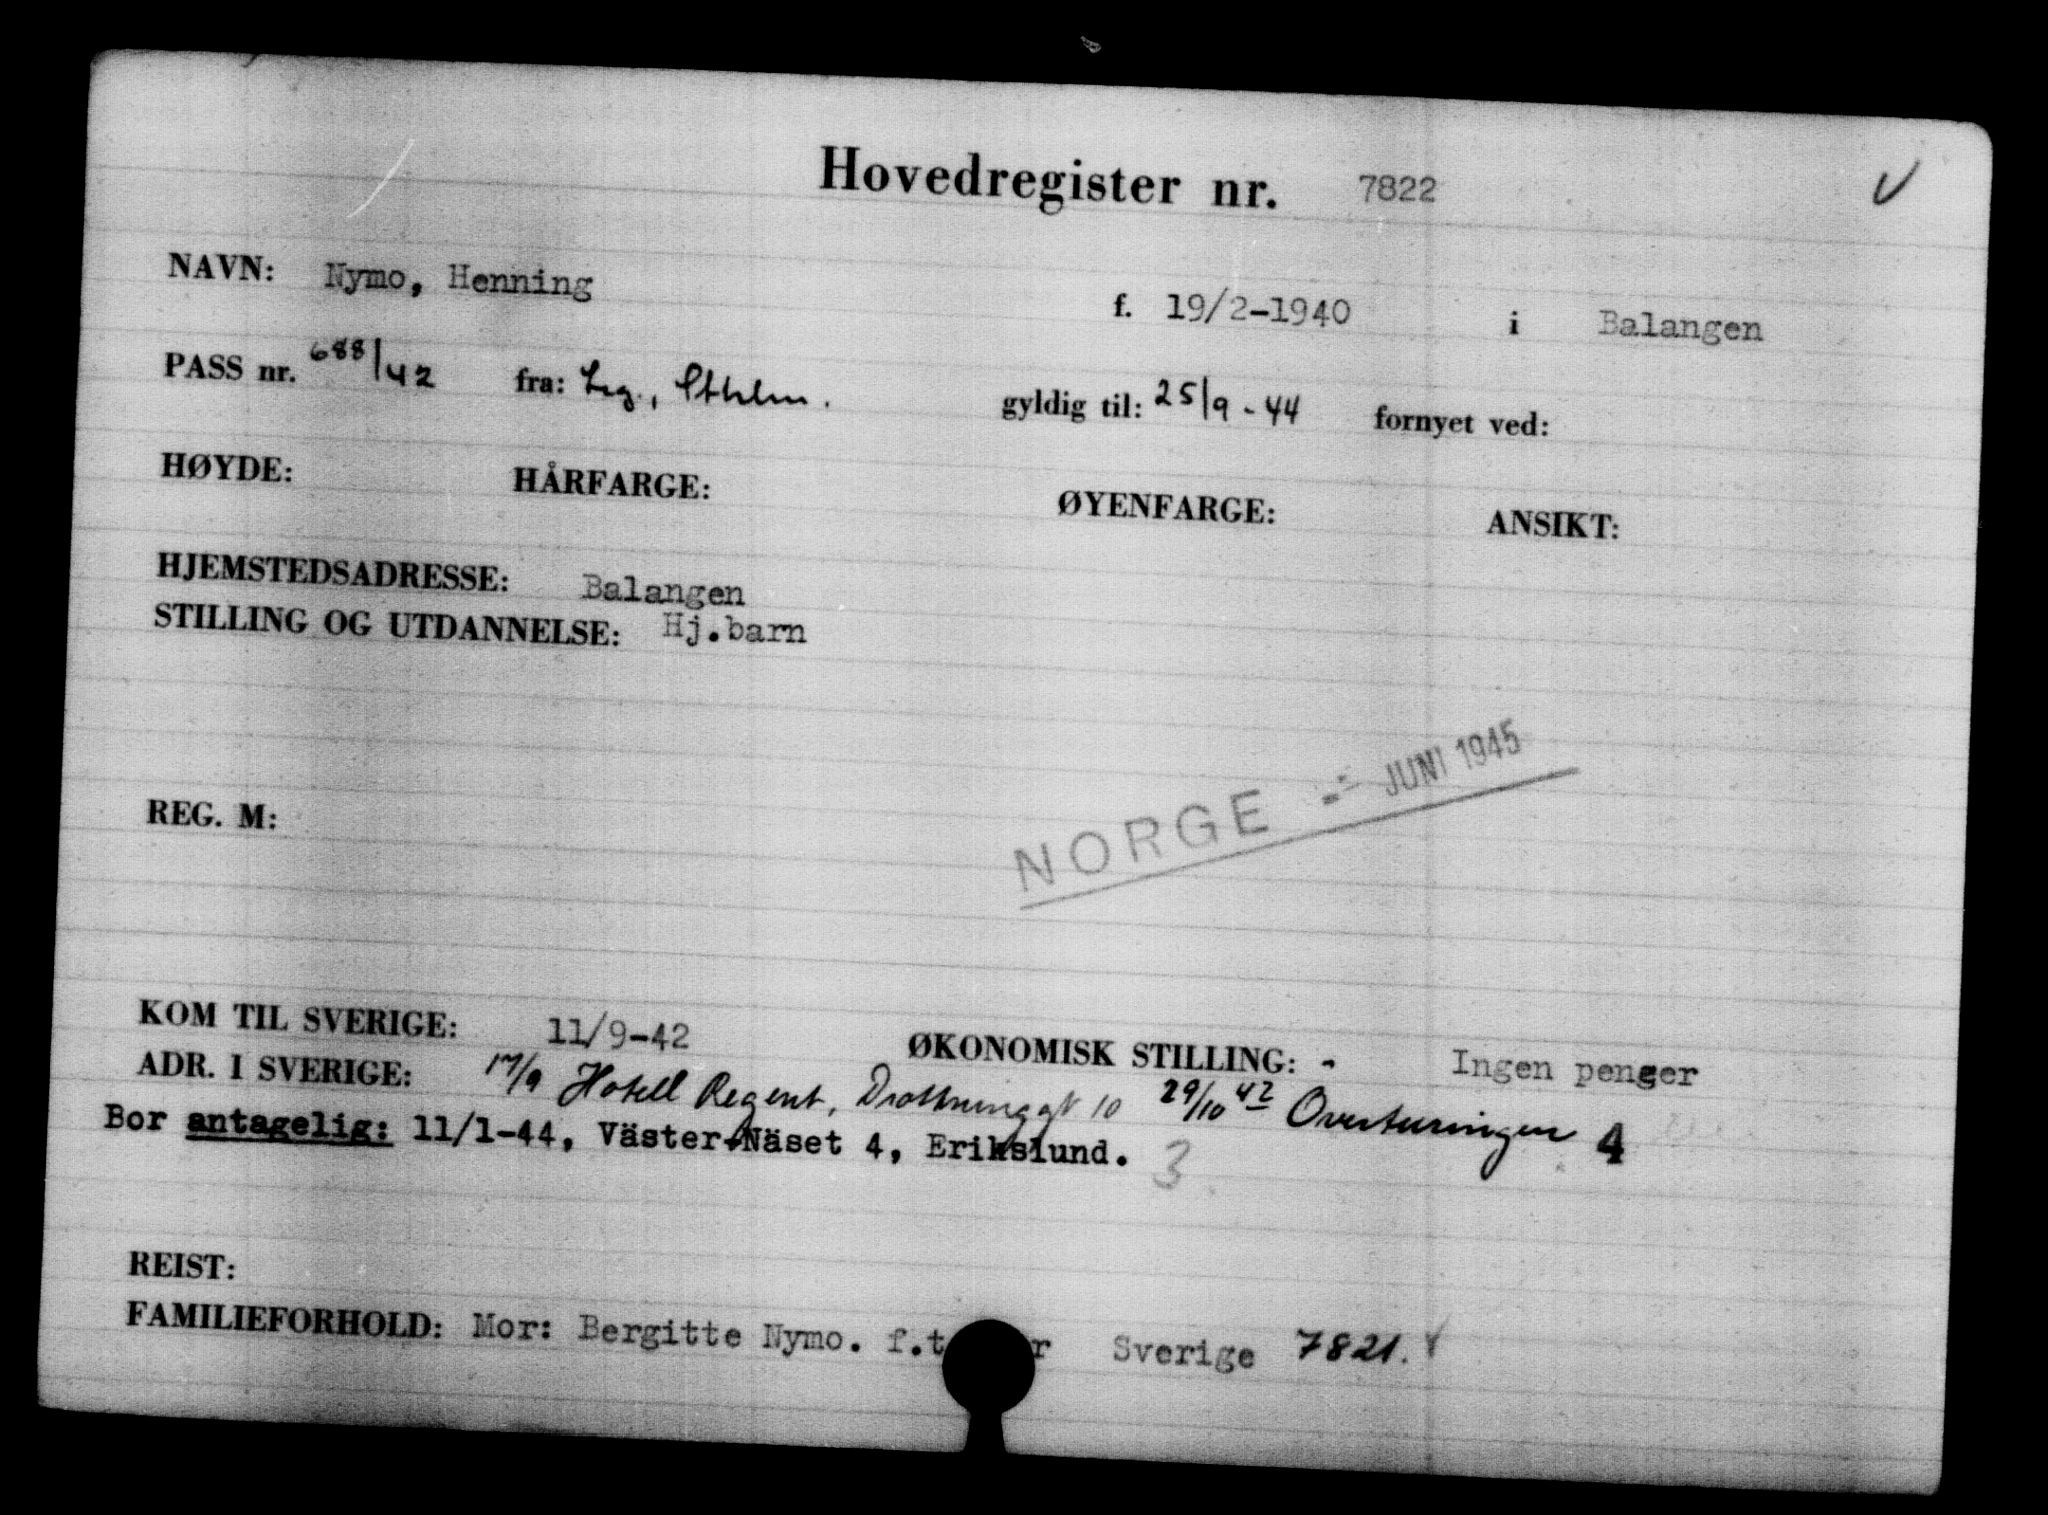 Hovedregister nr. 7822
NAVN: Nymo, Henning f. 19/2-1940 i Balangen
PASS nr. 688/42 fra: Leg., Sthlm. gyldig til: 25/9-44 fornyet ved:
HØYDE: HÅRFARGE: ØYENFARGE: ANSIKT:
HJEMSTEDSADRESSE: Balangen
STILLING OG UTDANNELSE: Hj.barn
NORGE - JUNI 1945
REG. M:
KOM TIL SVERIGE: 11/9-42 ØKONOMISK STILLING: - Ingen penger
ADR. I SVERIGE: 17/9 Hotell Regent, Drottninggt 10 29/10 42 Overturingen 4
Bor antagelig: 11/1-44, Väster-Näset 4, Erikslund. 3
REIST:
FAMILIEFORHOLD: Mor: Bergitte Nymo. Sverige 7821.